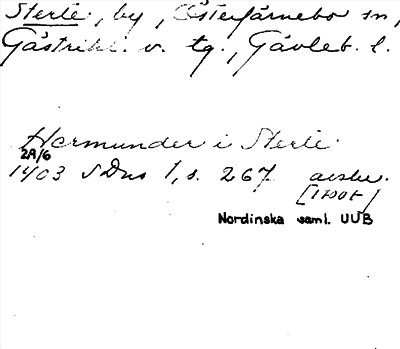 Sterte, by, Österfärnebo sn,
Gästrikl. v. tg., Gävleb. l.
Hermunder i Sterte
2A/6
1403 SDns 1, s. 267. avskr.
Nordinska saml. UUB